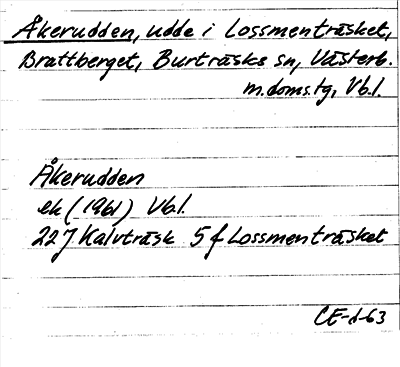 Åkerudden, udde i Lossmenträsket,
Brattberget, Burträsks sn, Västerb.
m.doms.tg, Vb.l.
Åkerudden
ek (1961) Vb.l.
22J Kalvträsk 5 f Lossmenträsket
CE-d-63